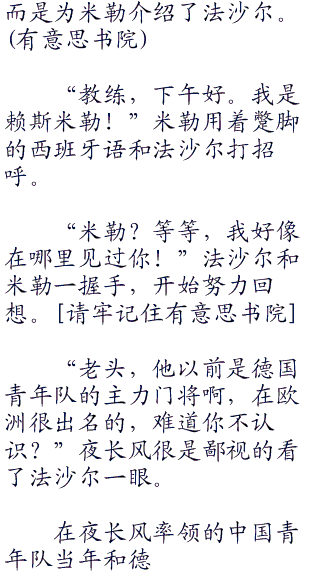 而是为米勒介绍了法沙尔。
(有意思书院)
“教练，下午好。我是
赖斯米勒！”米勒用着蹩脚
的西班牙语和法沙尔打招
呼。
“米勒？等等，我好像
在哪里见过你！”法沙尔和
米勒一握手，开始努力回
想。[请牢记住有意思书院]
“老头，他以前是德国
青年队的主力门将啊，在欧
洲很出名的，难道你不认
识？”夜长风很是鄙视的看
了法沙尔一眼。
在夜长风率领的中国青
年队当年和德